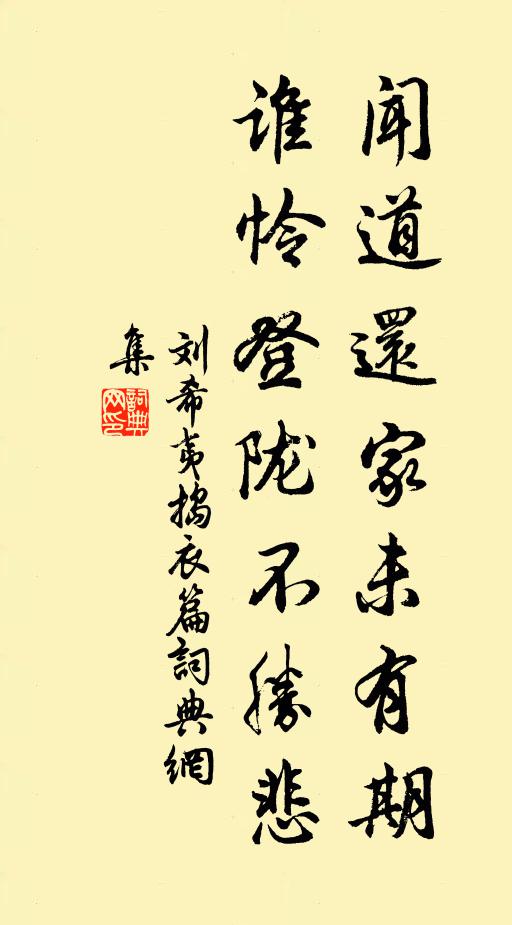 闻道還家未有期
谁怜登陇不勝悲
刘希夷搗衣篇詞典網
集
詞典网印